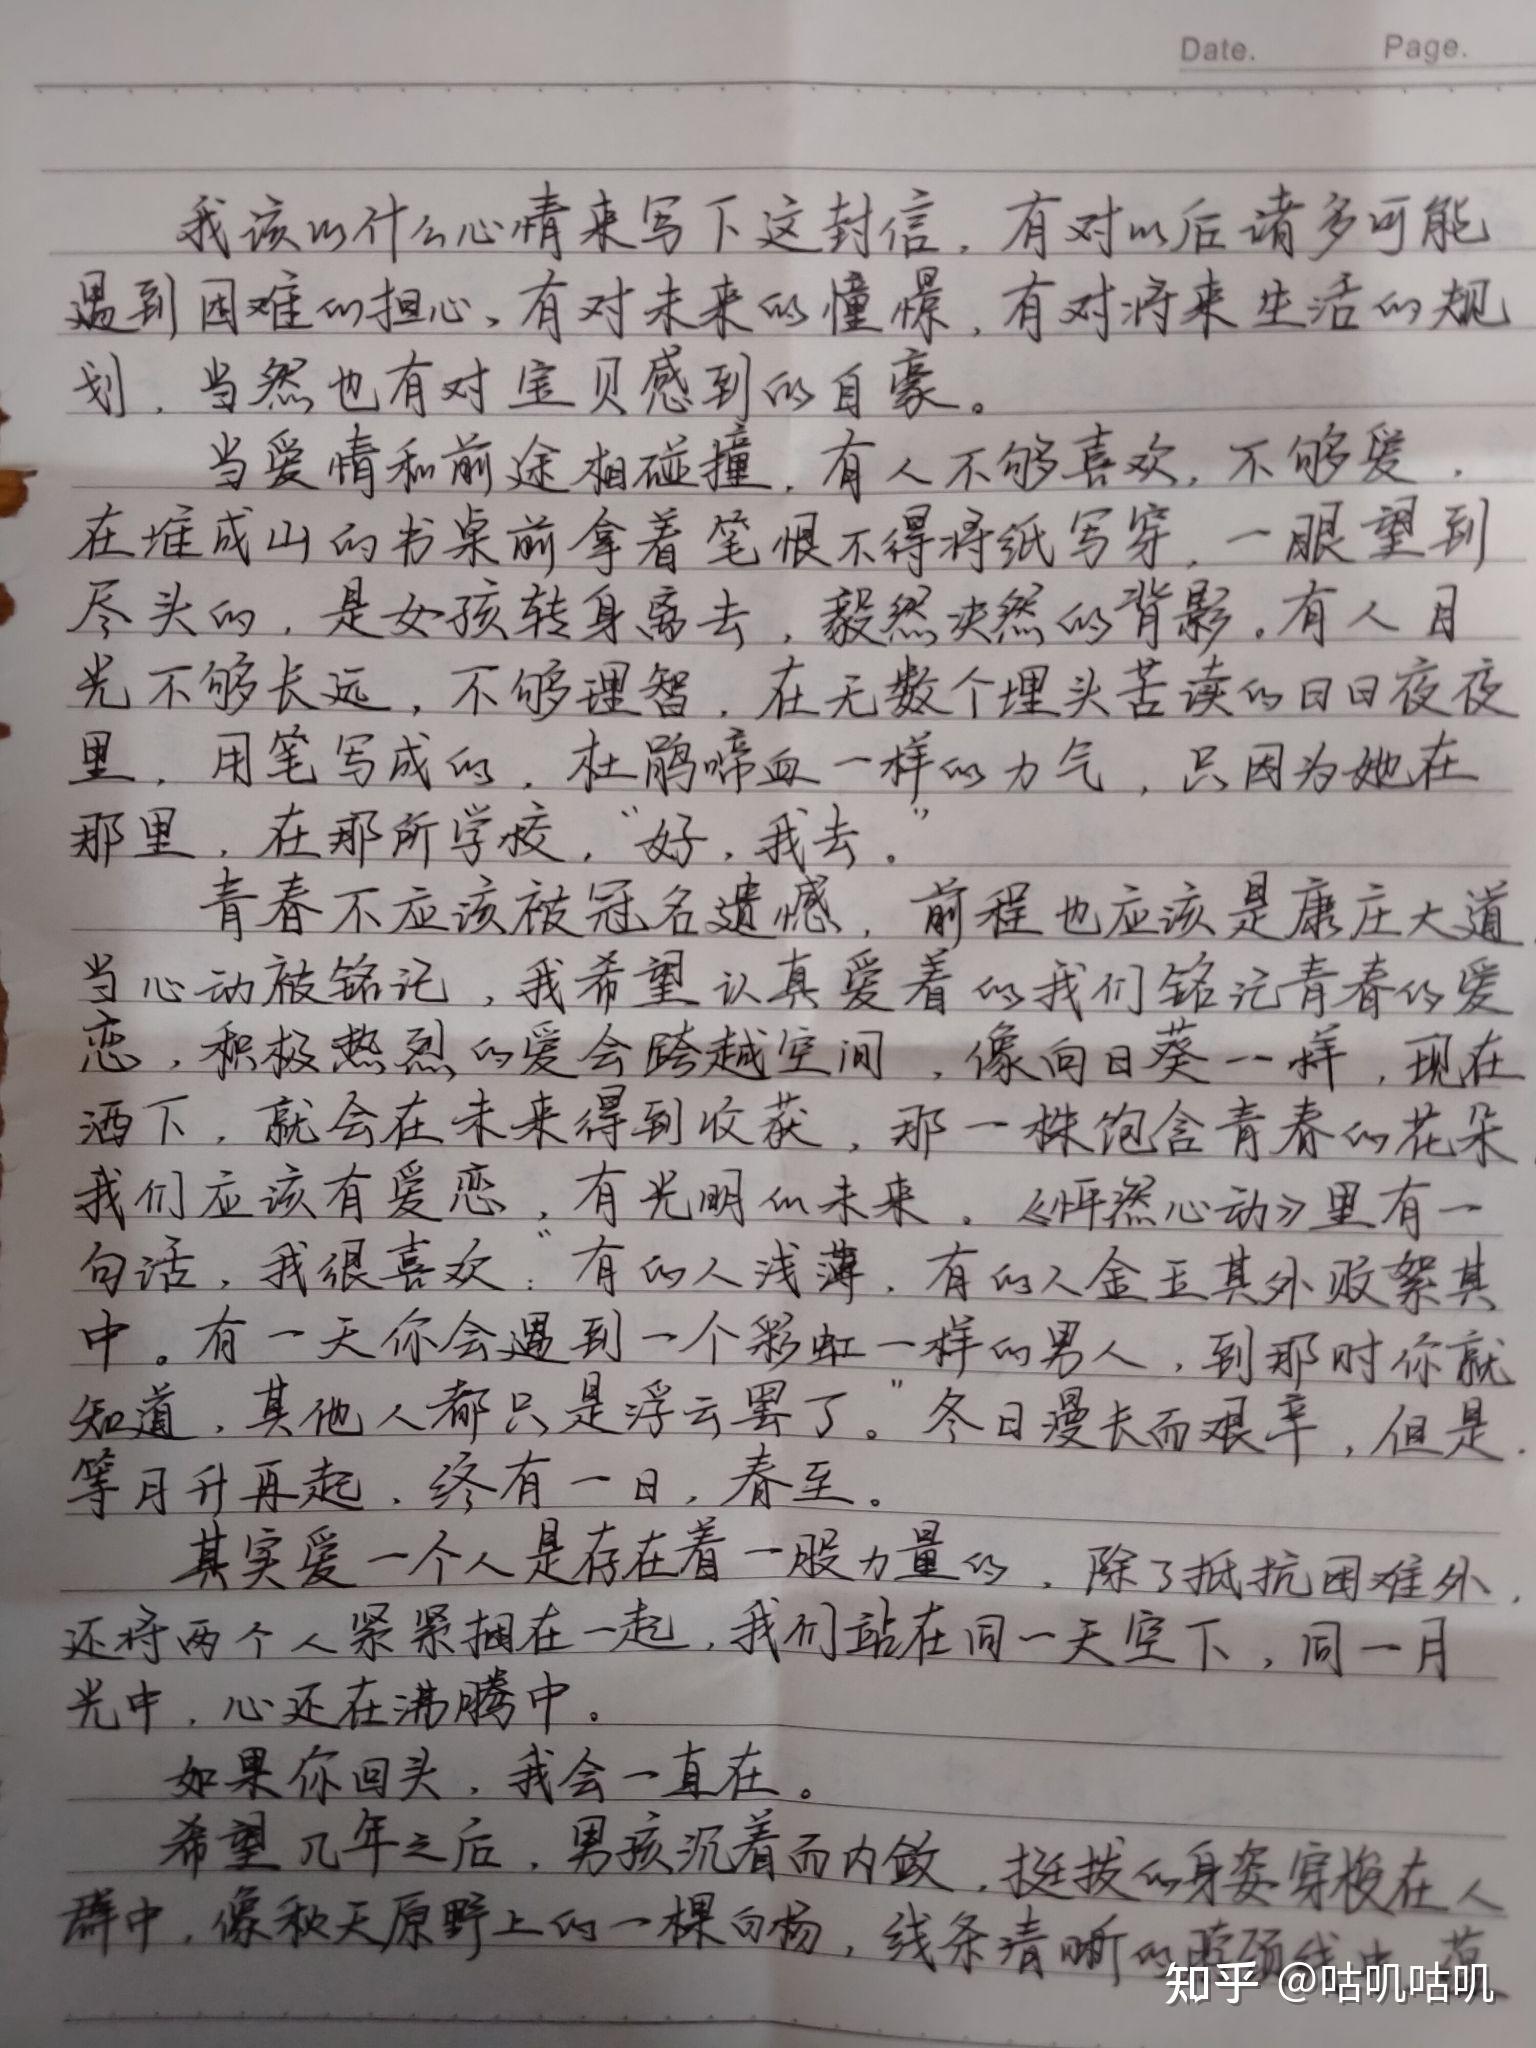 Date. Page.
我该以什么心情来写下这封信,有对以后诸多可能
遇到困难的担心、有对未来的憧憬,有对将来生活的规
划,当然也有对宝贝感到的自豪。
当爱情和前途相碰撞,有人不够喜欢,不够爱,
在堆成山的书桌前拿着笔恨不得将纸写穿,一眼望到
尽头的,是女孩转身离去,毅然决然的背影。有人目
光不够长远,不够理智,在无数个埋头苦读的日日夜夜
里,用笔写成的,杜鹃啼血一样的力气,只因为她在
那里,在那所学校,“好,我去。”
青春不应该被冠名遗憾,前程也应该是康庄大道,
当心动被铭记,我希望认真爱着的我们铭记青春的爱
恋,积极热烈的爱会跨越空间,像向日葵一样,现在
洒下,就会在未来得到收获,那一株饱含青春的花朵,
我们应该有爱恋,有光明的未来。《怦然心动》里有一
句话,我很喜欢:“有的人浅薄,有的人金玉其外败絮其
中。有一天你会遇到一个彩虹一样的男人,到那时你就
知道,其他人都只是浮云罢了。”冬日漫长而艰辛,但是,
等月升再起,终有一日,春至。
其实爱一个人是存在着一股力量的,除了抵抗困难外,
还将两个人紧紧捆在一起,我们站在同一天空下,同一月
光中,心还在沸腾中。
如果你回头,我会一直在。
希望几年之后,男孩沉着而内敛,挺拔的身姿穿梭在人
群中,像秋天原野上的一棵白杨,线条清晰的
知乎 @咕叽咕叽